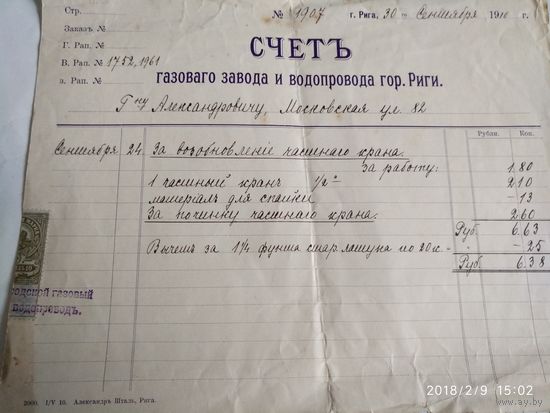 Стр.
№ 1907 г. Рига, 30 го Сентября 1910 г.
Заказъ №
Г. Рап. №
В. Рап. № 1752, 1961
з. Рап. №
СЧЕТЪ
газоваго завода и водопровода гор. Риги.
Г ну Александровичу, Московская ул. 82
Рубли. Коп.
Сентября 24. За возобновленіе часннаго крана.
За работу: 1.80
1 часнный кранъ 1/2" 2.10
матеріалъ для спайки – 13
За починку часннаго крана. 2.60
Руб. 6.63
Вычетъ за 1 1/4 фунта стар. латуни по 20 к. – 25
Руб. 6.38
газовый
водопроводъ.
2000. I/V 10. Александръ Шталь, Рига.
2018/2/9 15:02
www.ay.by